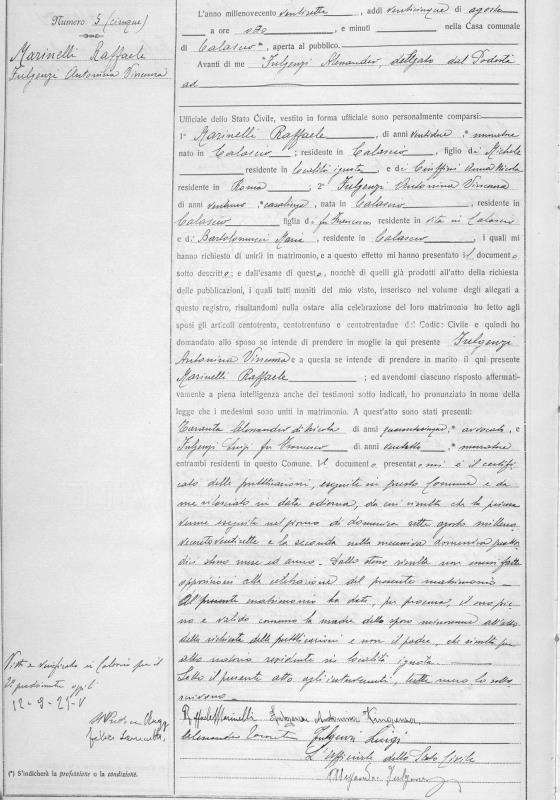 Numero 5 (cinque)
Marinelli Raffaele
Fulgenzi Antonina Vincenza
L'anno millenovecento ventisette, addì venticinque di agosto
a ore otto, e minuti nella Casa comunale
di Calascio, aperta al pubblico.
Avanti di me Fulgenzi Alessandro, delegato dal Podestà
ad
Ufficiale dello Stato Civile, vestito in forma ufficiale sono personalmente comparsi:
1° Marinelli Raffaele, di anni ventidue * muratore
nato in Calascio; residente in Calascio, figlio di Michele
residente in località ignota e di Ciuffini Anna Nicola
residente in Roma; 2° Fulgenzi Antonina Vincenza
di anni ventuno * casalinga, nata in Calascio, residente in
Calascio figlia di fu Francesco residente in vita in Calascio
e di Bartolomucci Maria, residente in Calascio, i quali mi
hanno richiesto di unirli in matrimonio, e a questo effetto mi hanno presentato il documento
sotto descritto; e dall'esame di questo, nonchè di quelli già prodotti all'atto della richiesta
delle pubblicazioni, i quali tutti muniti del mio visto, inserisco nel volume degli allegati a
questo registro, risultandomi nulla ostare alla celebrazione del loro matrimonio ho letto agli
sposi gli articoli centotrenta, centotrentuno e centotrentadue del Codice Civile e quindi ho
domandato allo sposo se intende di prendere in moglie la qui presente Fulgenzi
Antonina Vincenza e a questa se intende di prendere in marito il qui presente
Marinelli Raffaele; ed avendomi ciascuno risposto affermati-
vamente a piena intelligenza anche dei testimoni sotto indicati, ho pronunziato in nome della
legge che i medesimi sono uniti in matrimonio. A quest'atto sono stati presenti:
Taranta Alessandro di Nicola di anni quarantacinque, * avvocato, e
Fulgenzi Luigi fu Francesco di anni ventotto, * muratore
entrambi residenti in questo Comune. Il documento presentatomi è il certifi-
cato delle pubblicazioni, eseguite in questo Comune e da
me rilasciato in data odierna, da cui risulta che la prima
venne eseguita nel giorno di domenica sette agosto millenno-
vecentoventisette e la seconda nella successiva domenica quattor-
dici stesso mese ed anno. Dallo stesso risulta non essersi fatta
opposizione alla celebrazione del presente matrimonio.
Al presente matrimonio ha dato, per procura, il suo pie-
no e valido consenso la madre dello sposo minorenne all'atto
della richiesta delle pubblicazioni e non il padre, che risulta per
atto notorio residente in località ignota.
Letto il presente atto agli intervenuti, tutti meco lo sotto-
scrivono.
Raffaele Marinelli Fulgenzi Antonina Vincenza
Alessandro Taranta Fulgenzi Luigi
L'ufficiale dello Stato Civile
Alessandro Fulgenzi
Visto e verificato in Calascio per il
12-9-27-V
(*) S'indicherà la professione o la condizione.